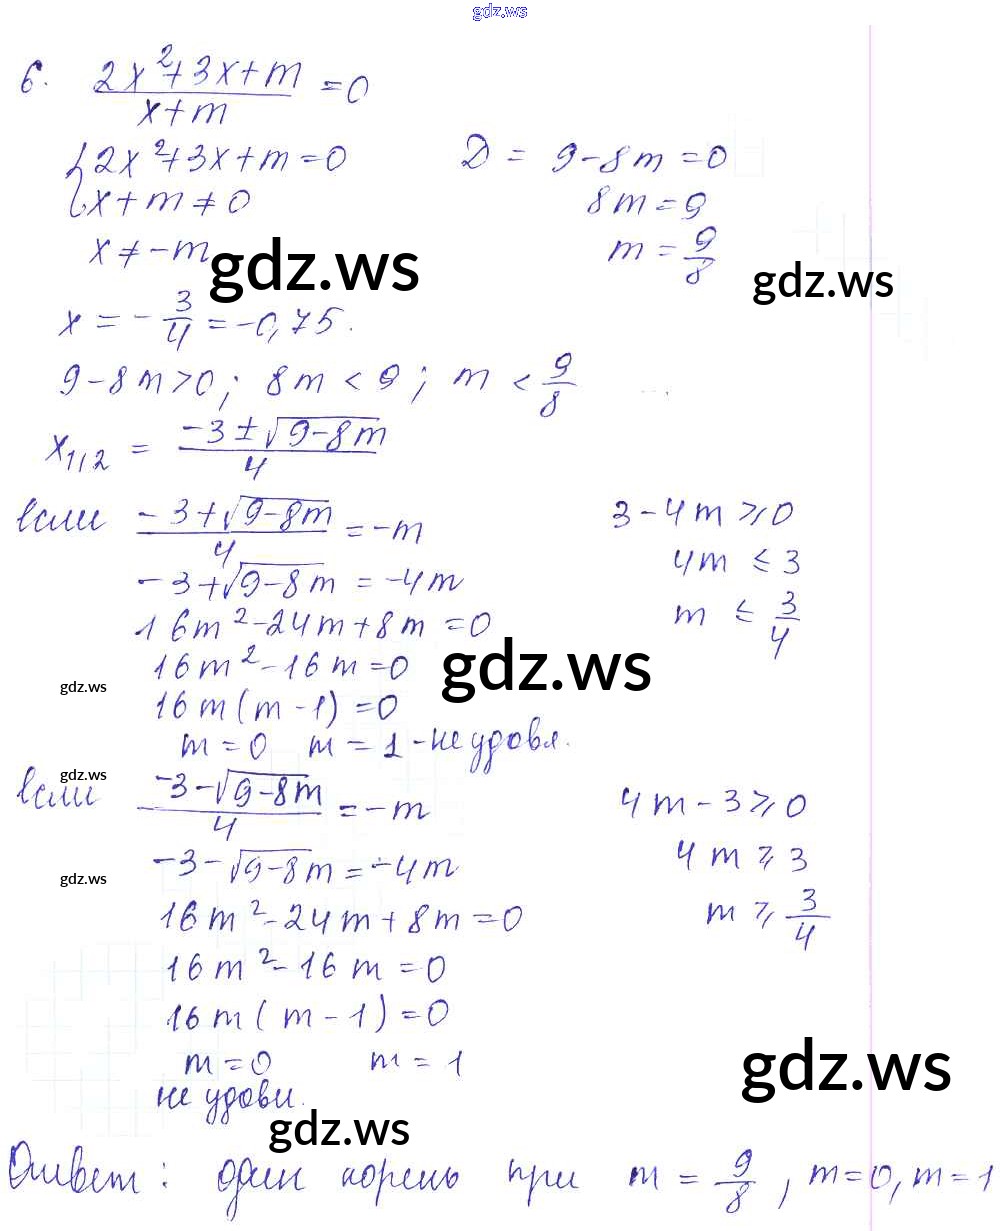 gdz.ws
6. (2x²+3x+m)/(x+m) = 0
{2x²+3x+m=0 D = 9-8m=0
{x+m≠0 8m=9
x≠-m gdz.ws m = 9/8 gdz.ws
x = -3/4 = -0,75.
9-8m>0; 8m<9; m < 9/8
x1,2 = (-3±√(9-8m))/4
если (-3+√(9-8m))/4 = -m 3-4m⩾0
-3+√(9-8m) = -4m 4m ≤ 3
16m²-24m+8m=0 m ≤ 3/4
16m²-16m=0 gdz.ws
gdz.ws
16m(m-1)=0
m=0 m=1-не удовл.
gdz.ws
если (-3-√(9-8m))/4 = -m 4m-3⩾0
-3-√(9-8m) = -4m 4m⩾3
gdz.ws
16m²-24m+8m=0 m⩾3/4
16m²-16m=0
16m(m-1)=0
m=0 m=1 gdz.ws
не удовл.
gdz.ws
Ответ: один корень при m = 9/8, m=0, m=1